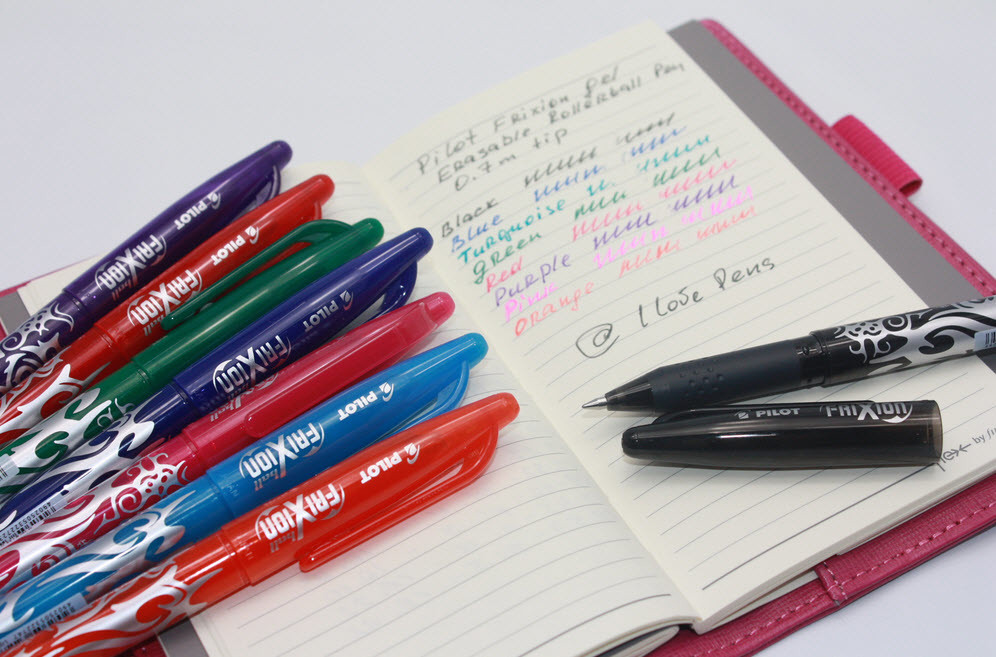 Pilot Frixion Gel
Erasable Rollerball Pen
0.7m tip
Black
Blue
Turquoise
green
Red
Purple
Pink
Orange
@ I love Pens
PILOT
FRIXION ball
PILOT
FRIXION ball
PILOT
FRIXION ball
FRIXION ball
PILOT
FRIXION ball
PILOT
FRIXION
flex by